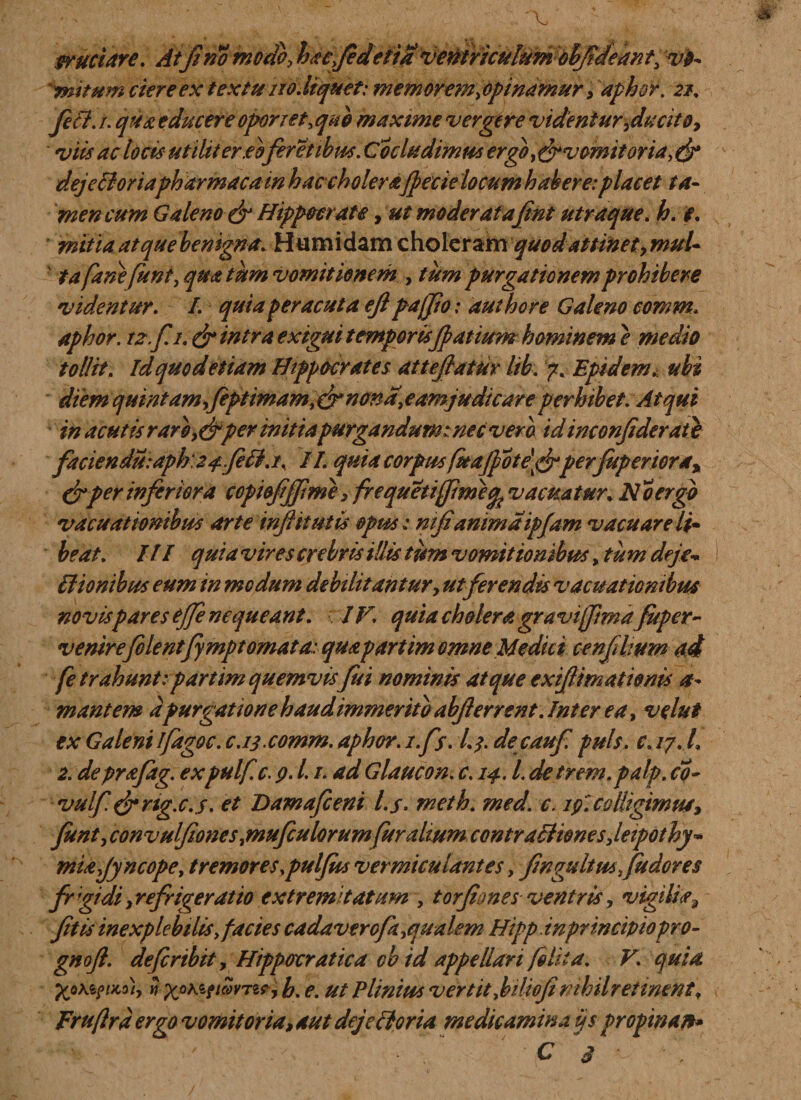 cruciare. At ſi nō modò, hæc, ſed etiā ventriculum obſideant, vo-
mitum ciere ex textu nō liquet: memorem, opinamur, aphor. 21.
ſect. 1. quæ educere oportet, quò maxime vergere videntur, ducito,
viis ac locis utiliter eò feretibus. Cōcludimus ergò, & vomitoria, &
dejectoria pharmaca in hac choleræ ſpecie locum habere: placet ta-
men cum Galeno & Hippocrate, ut moderata ſint utraque. h. e.
mitia atque benigna. Humidam choleram quod attinet, mul-
ta ſanè ſunt, quæ tùm vomitionem, tùm purgationem prohibere
videntur. I. quia peracuta eſt paſſio: authore Galeno comm.
aphor. 12. ſ. 1. & intra exigui temporis ſpatium hominem è medio
tollit. Id quod etiam Hippocrates atteſtatur lib. 7. Epidem. ubi
diem quintam, ſeptimam, & nonā, eam judicare perhibet. Atqui
in acutis rarò, & per initia purgandum: nec verò id inconſideratè
faciendū: aph: 24. ſect. 1. II. quia corpus ſua ſpōte, & per ſuperiora,
& per inferiora copioſiſſimè, frequētiſſimeq; vacuatur. Nō ergò
vacuationibus arte inſtitutis opus: niſi animā ipſam vacuare li-
beat. III quia vires crebris illis tùm vomitionibus, tùm deje-
ctionibus eum in modum debilitantur, ut ferendis vacuationibus
novis pares eſſe nequeant. IV. quia choleræ graviſſima ſuper-
venire ſolent ſymptomata: quæ partim omne Medici cenſilium ad
ſe trahunt: partim quemvis ſui nominis atque exiſtimationis a-
mantem à purgatione haud immeritò abſterrent. Inter ea, velut
ex Galeni Iſagoc. c. 13. comm. aphor. 1. ſ 5. l. 3. de cauſ. puls. c. 17. l.
2. de præſag. ex pulſ. c. 9. l. 1. ad Glaucon. c. 14. l. de trem. palp. cō-
vulſ. & rig. c. 5. et Damaſceni l. 5. meth. med. c. 19. colligimus,
ſunt, convulſiones, muſculorum ſuralium contractiones, leipothy-
miæ, ſyncope, tremores, pulſus vermiculantes, ſingultus, ſudores
frigidi, refrigeratio extremitatum, torſiones ventris, vigiliæ,
ſitis inexplebilis, facies cadaveroſa, qualem Hipp. in principio pro-
gnoſt. deſcribit, Hippocratica ob id appellari ſolita. V. quia
χολερικοὶ, ἢ χολεριῶντες, h. e. ut Plinius vertit, bilioſi nihil retinent,
Fruſtrà ergo vomitoria, aut dejectoria medicamina ijs propinan-
C 3